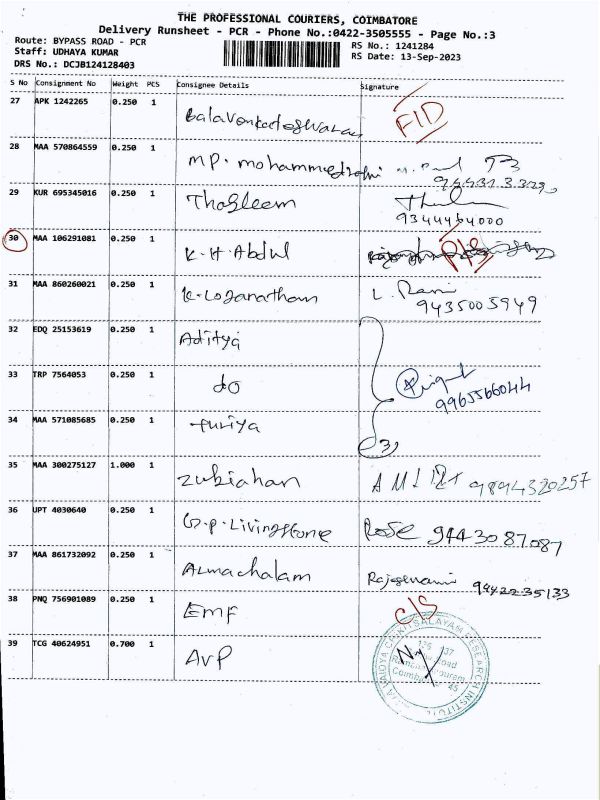 THE PROFESSIONAL COURIERS, COIMBATORE
Delivery Runsheet - PCR - Phone No.:0422-3505555 - Page No.:3
Route: BYPASS ROAD - PCR
RS No.: 1241284
Staff: UDHAYA KUMAR
RS Date: 13-Sep-2023
DRS No.: DCJB124128403
S No Consignment No Weight PCS Consignee Details Signature
27 APK 1242265 0.250 1
28 MAA 570864559 0.250 1 MP. mohammed
29 KUR 695345016 0.250 1 Thasleem
9344464000
30 MAA 106291081 0.250 1 K.H. Abdul
31 MAA 860260021 0.250 1 K. Loganatham L. Rani
9435005949
32 EDQ 25153619 0.250 1 Aditya
33 TRP 7564053 0.250 1 do
9965566044
34 MAA 571085685 0.250 1 Suriya
3
35 MAA 300275127 1.000 1 Zubiahan
9894320257
36 UPT 4030640 0.250 1 G.P. Livingstone Rose 9443087087
37 MAA 861732092 0.250 1 Almachalam 9442235133
38 PNQ 756901089 0.250 1 EMF
39 TCG 40624951 0.700 1 AVP